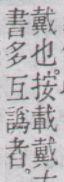 戴也。按載戴古
書多互譌者。